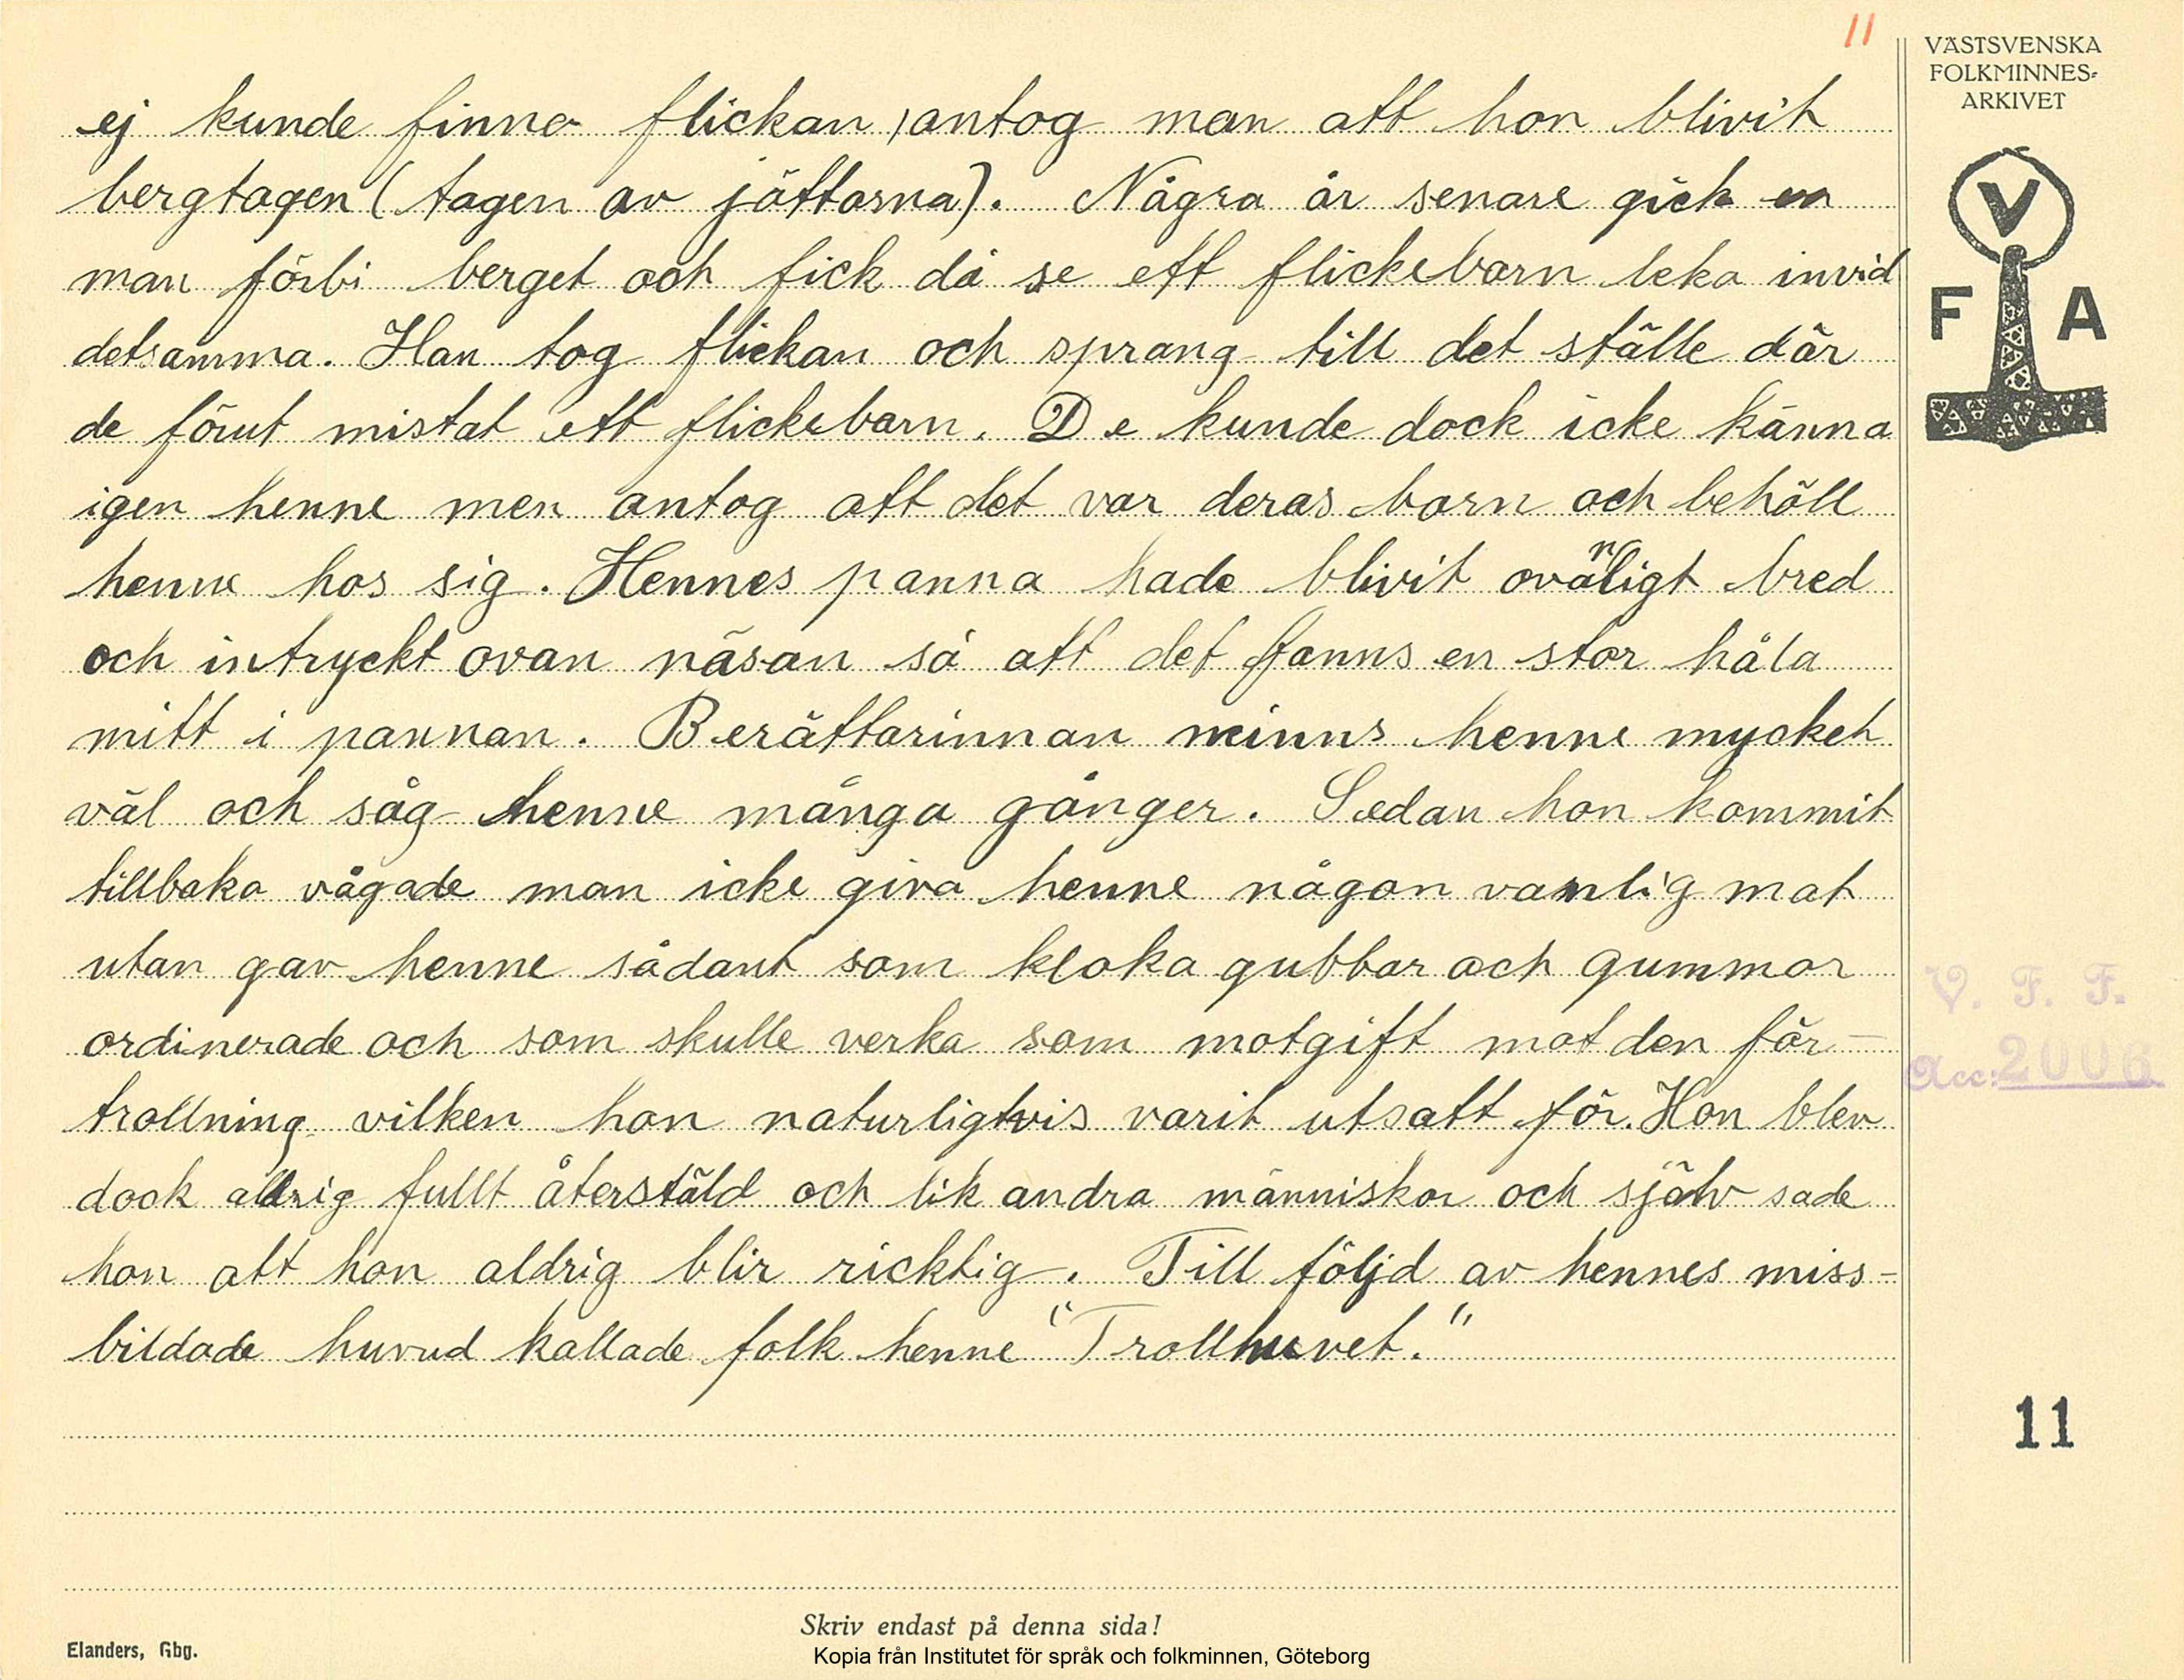 11
VÄSTSVENSKA
FOLKMINNES-
ARKIVET
V
F A
ej kunde finna flickan, antog man att hon blivit
bergtagen (tagen av jättarna). Några år senare gick en
man förbi berget och fick då se ett flickebarn leka invid
detsamma. Han tog flickan och sprang till det ställe där
de förut mistat ett flickebarn. De kunde dock icke känna
igen henne men antog att det var deras barn och behöll
henne hos sig. Hennes panna hade blivit ovänligt bred
och intryckt ovan näsan så att det fanns en stor håla
mitt i pannan. Berättarinnan minns henne mycket
väl och såg henne många gånger. Sedan hon kommit
tillbaka vågade man icke giva henne någon vanlig mat
utan gav henne sådant som kloka gubbar och gummor
ordinerade och som skulle verka som motgift mot den för-
trollning vilken hon naturligtvis varit utsatt för. Hon blev
dock aldrig fullt återstäld och lik andra människor och själv sade
hon att hon aldrig blir ricktig. Till följd av hennes miss-
bildade huvud kallade folk henne "Trollhuvet."
V. F. F.
Acc: 2006
11
Skriv endast på denna sida!
Elanders, Gbg.
Kopia från Institutet för språk och folkminnen, Göteborg